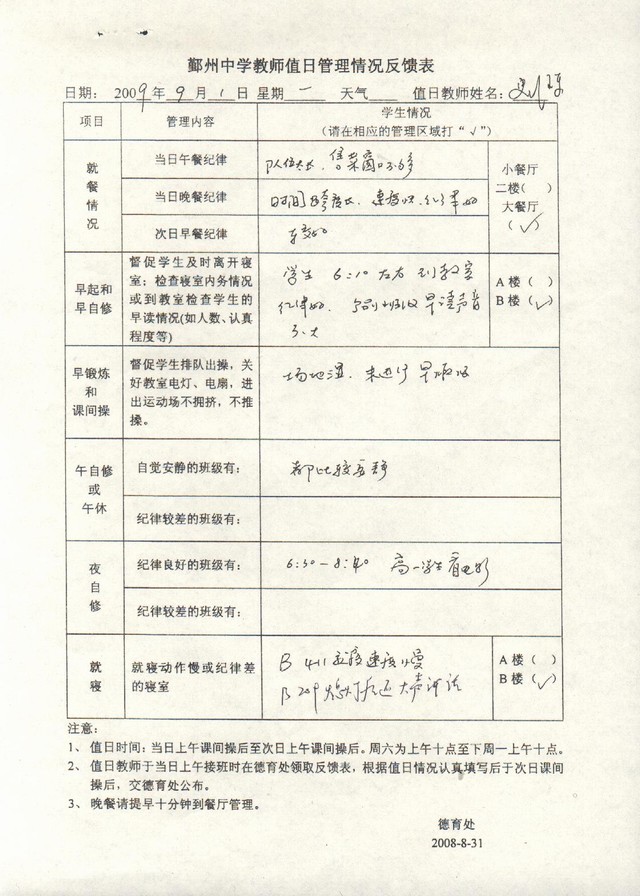 鄞州中学教师值日管理情况反馈表
日期： 2009年 9月 1日 星期 一 天气 值日教师姓名：
项目 管理内容 学生情况
（请在相应的管理区域打“√”）
就餐情况
当日午餐纪律 队伍太长，售菜窗口不多
当日晚餐纪律 时间跨度大，速度快，纪律好
次日早餐纪律 较好
小餐厅
二楼（ ）
大餐厅
（√）
早起和
早自修
督促学生及时离开寝
室；检查寝室内务情况
或到教室检查学生的
早读情况(如人数、认真
程度等)
学生 6:10 左右 到教室
纪律好， 个别班级早读声音
不大
A 楼（ ）
B 楼（√）
早锻炼
和
课间操
督促学生排队出操，关
好教室电灯、电扇，进
出运动场不拥挤，不推
搡。
场地湿，未进行早锻炼
午自修
或
午休
自觉安静的班级有： 都比较安静
纪律较差的班级有：
夜自修
纪律良好的班级有： 6:30－8:40 高一学生看电影
纪律较差的班级有：
就寝
就寝动作慢或纪律差
的寝室
B 411 就寝速度慢
B 209 熄灯后还大声讲话
A 楼（ ）
B 楼（√）
注意：
1、 值日时间：当日上午课间操后至次日上午课间操后。周六为上午十点至下周一上午十点。
2、 值日教师于当日上午接班时在德育处领取反馈表，根据值日情况认真填写后于次日课间
操后，交德育处公布。
3、 晚餐请提早十分钟到餐厅管理。
德育处
2008-8-31